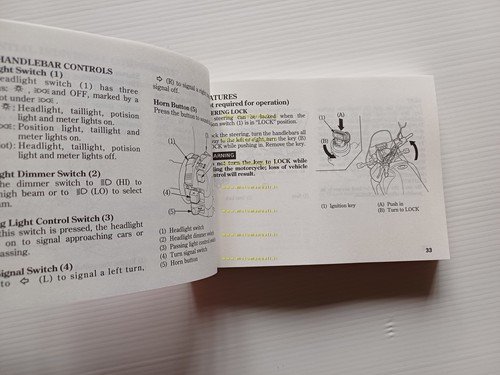 HANDLEBAR CONTROLS
ght Switch (1)
eadlight switch (1) has three
and OFF, marked by a
ot under
: Headlight, taillight, potision
light and meter lights on.
: Position light, taillight and
meter lights on.
ot): Headlight, taillight, potision
light and meter lights off.
ight Dimmer Switch (2)
he dimmer switch to (HI) to
high beam or to (LO) to select
am.
ng Light Control Switch (3)
this switch is pressed, the headlight
on to signal approaching cars or
assing.
Signal Switch (4)
to (L) to signal a left turn,
(R) to signal a right
signal off.
Horn Button (5)
Press the button to
(1)
(4)
(5)
(1) Headlight switch
(2) Headlight dimmer switch
(3) Passing light control switch
(4) Turn signal switch
(5) Horn button
ATURES
ot required for operation)
ERING LOCK
steering can be locked when the
ition switch (1) is in "LOCK" position.
ock the steering, turn the handlebars all
way to the left or right, turn the key (B)
OCK while pushing in. Remove the key.
WARNING
o not turn the key to LOCK while
ling the motorcycle; loss of vehicle
ontrol will result.
(1)
(A)
(B)
(1) Ignition key
(A) Push in
(B) Turn to LOCK
33